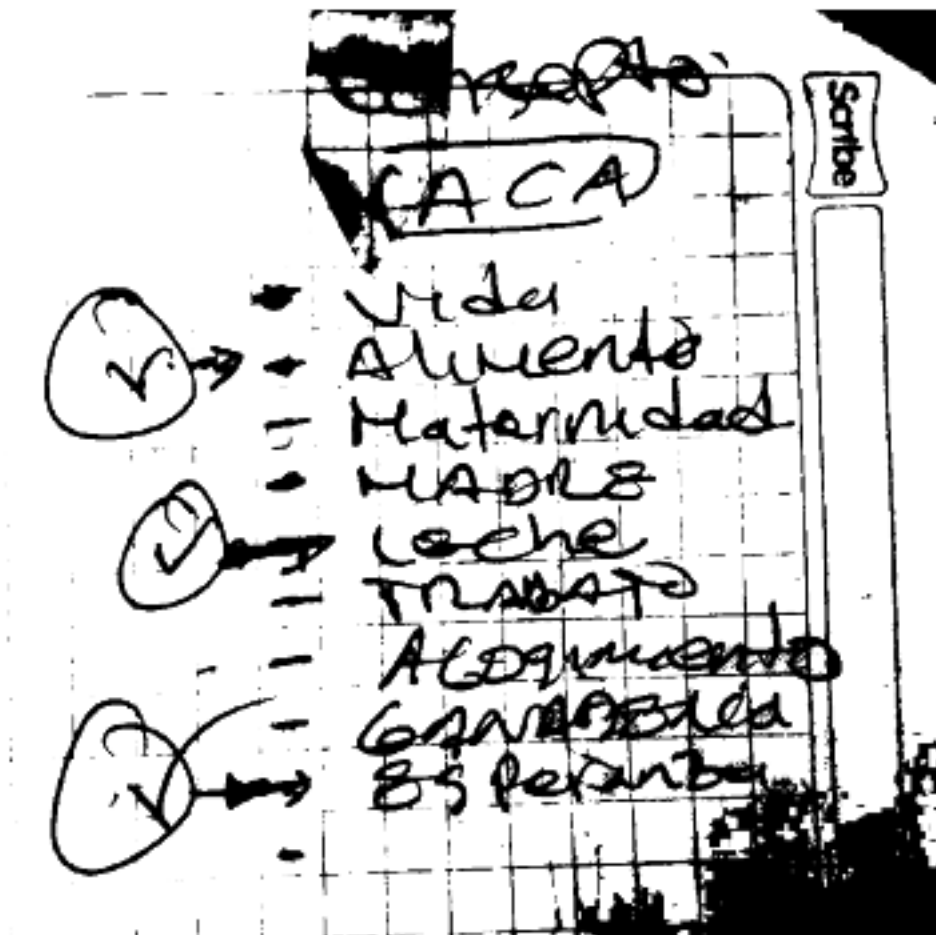 Concepto
Scribe
CACA
Vida
Alimento
Maternidad
MADRE
Leche
TRABAJO
Acogimiento
GANADERIA
Esperanza